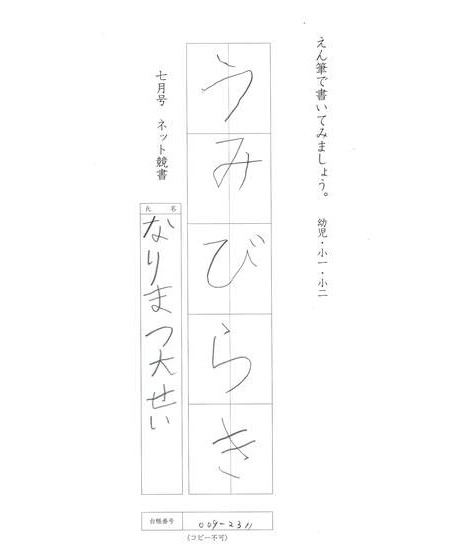 えん筆で書いてみましょう。 幼児・小一・小二
うみびらき
七月号 ネット競書
氏名
なりまつ大せい
台帳番号 009-2311
(コピー不可)